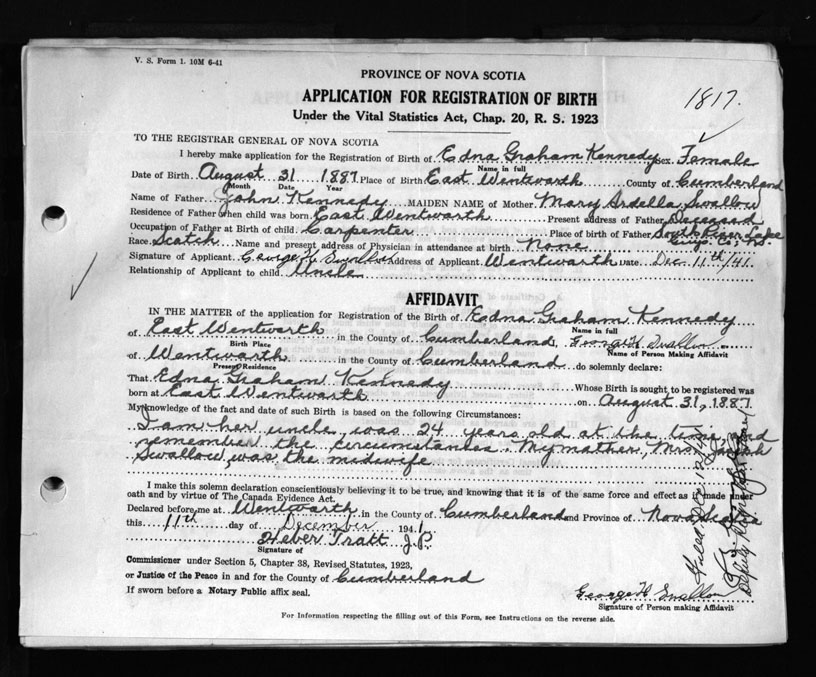 V. S. Form 1. 10M 6-41
PROVINCE OF NOVA SCOTIA
APPLICATION FOR REGISTRATION OF BIRTH
1817.
Under the Vital Statistics Act, Chap. 20, R. S. 1923
TO THE REGISTRAR GENERAL OF NOVA SCOTIA
I hereby make application for the Registration of Birth of Edna Graham Kennedy Sex Female
Name in full
Date of Birth August 31 1887 Place of Birth East Wentworth County of Cumberland
Month Date Year
Name of Father John Kennedy MAIDEN NAME of Mother Mary Ardella Swallow
Residence of Father when child was born East Wentworth Present address of Father Deceased
Occupation of Father at Birth of child Carpenter Place of birth of Father South River Lake
Guys. Co., N.S.
Race Scotch Name and present address of Physician in attendance at birth None
Signature of Applicant George H Swallow Address of Applicant Wentworth Date Dec 11th/41.
Relationship of Applicant to child Uncle
AFFIDAVIT
IN THE MATTER of the application for Registration of the Birth of Edna Graham Kennedy
Name in full
of East Wentworth in the County of Cumberland, George H Swallow
Birth Place Name of Person Making Affidavit
of Wentworth in the County of Cumberland do solemnly declare:
Present Residence
That Edna Graham Kennedy Whose Birth is sought to be registered was
born at East Wentworth on August 31, 1887.
My knowledge of the fact and date of such Birth is based on the following Circumstances:
I am her uncle, was 24 years old at the time, and
remember the circumstances. My mother, Mrs
Swallow, was the midwife
I make this solemn declaration conscientiously believing it to be true, and knowing that it is of the same force and effect as if made under
oath and by virtue of The Canada Evidence Act.
Declared before me at Wentworth in the County of Cumberland and Province of Nova Scotia
this 11th day of December 1941.
Heber Tratt J.P.
Signature of
Commissioner under Section 5, Chapter 38, Revised Statutes, 1923,
or Justice of the Peace in and for the County of Cumberland
If sworn before a Notary Public affix seal.
George H Swallow
Signature of Person making Affidavit
For Information respecting the filling out of this Form, see Instructions on the reverse side.